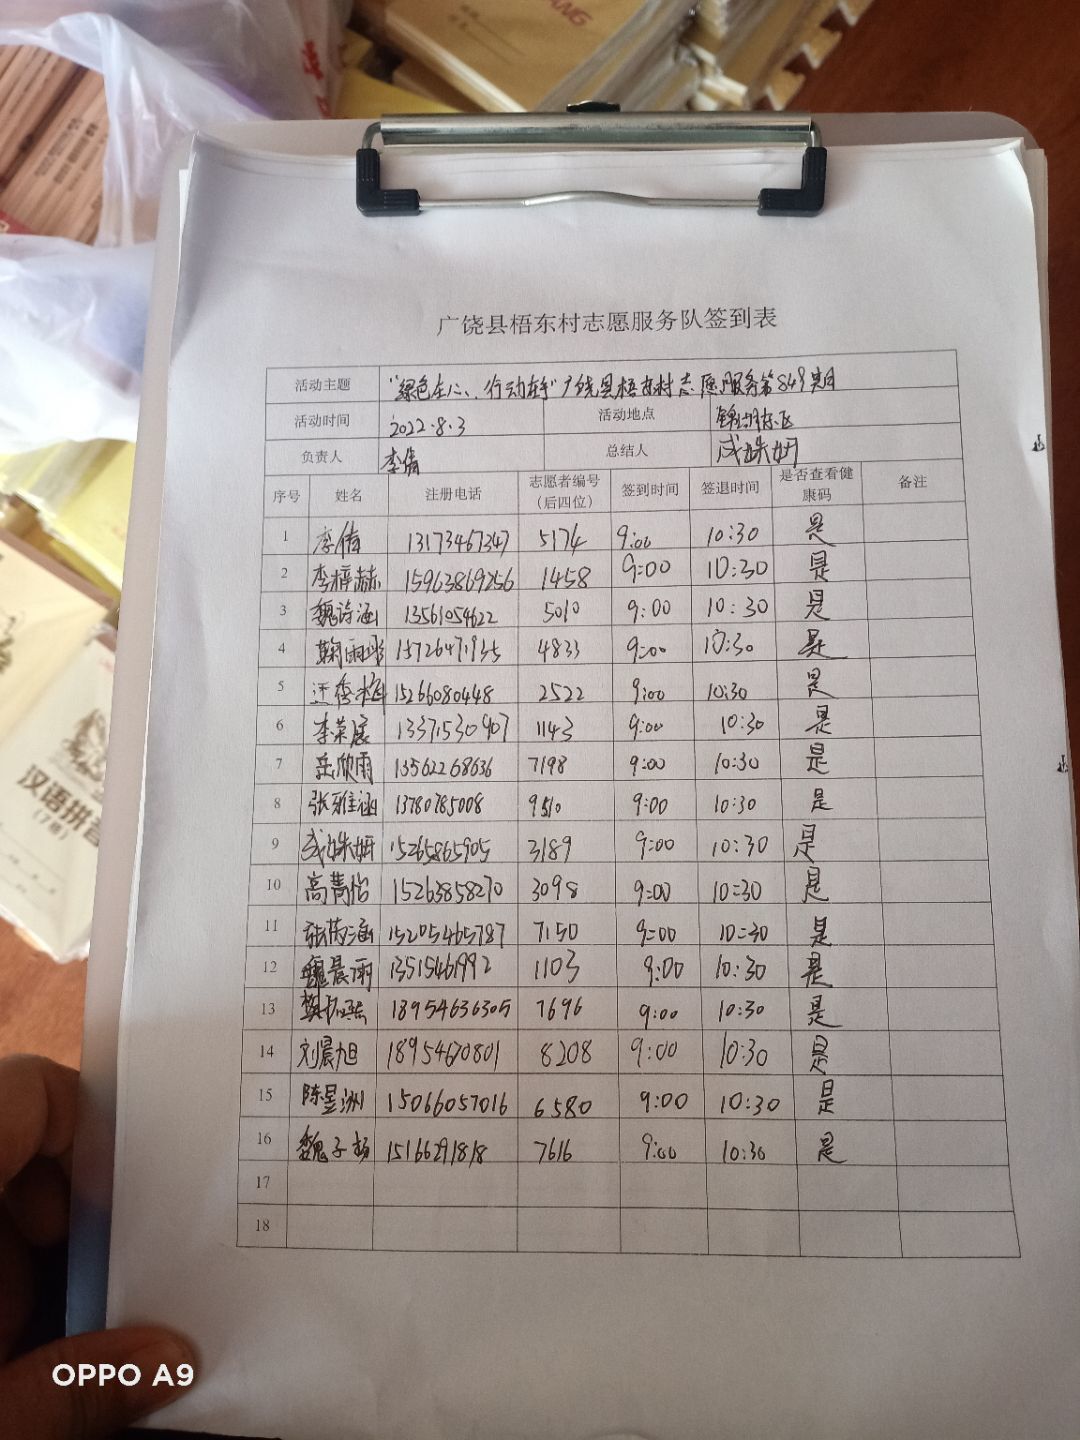 广饶县梧东村志愿服务队签到表
活动主题 "绿色在心、行动在手"广饶县梧东村志愿服务第849期
活动时间 2022.8.3 活动地点
负责人 李倩 总结人 成姝妍
序号 姓名 注册电话 志愿者编号（后四位） 签到时间 签退时间 是否查看健康码 备注
1 李倩 13173467347 5174 9:00 10:30 是
2 李梓赫 15963869256 1458 9:00 10:30 是
3 魏诗涵 13561054622 5010 9:00 10:30 是
4 鞠雨彤 15726471935 4833 9:00 10:30 是
5 15266080448 2522 9:00 10:30 是
6 李荣展 13371530907 1143 9:00 10:30 是
7 岳欣雨 13562268636 7198 9:00 10:30 是
8 张雅涵 13780785008 9510 9:00 10:30 是
9 成姝妍 15265865905 3189 9:00 10:30 是
10 高菁怡 15263858270 3098 9:00 10:30 是
11 15205465787 7150 9:00 10:30 是
12 魏晨雨 13515461992 1103 9:00 10:30 是
13 18954636305 7696 9:00 10:30 是
14 刘晨旭 18954670801 8208 9:00 10:30 是
15 陈昱洲 15066057016 6580 9:00 10:30 是
16 魏子杨 15166291818 7616 9:00 10:30 是
17
18
汉语拼音
(7册)
OPPO A9